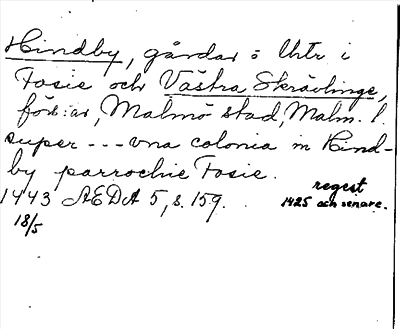 Hindby, gårdar o Uhtr i
Fosie och Västra Skrävlinge,
förs:ar, Malmö stad, Malm. l.
super --- vna colonia in Hind-
by parrochie Fosie.
regest
1443 AEDA 5, s. 159. 1425 och senare.
18/5